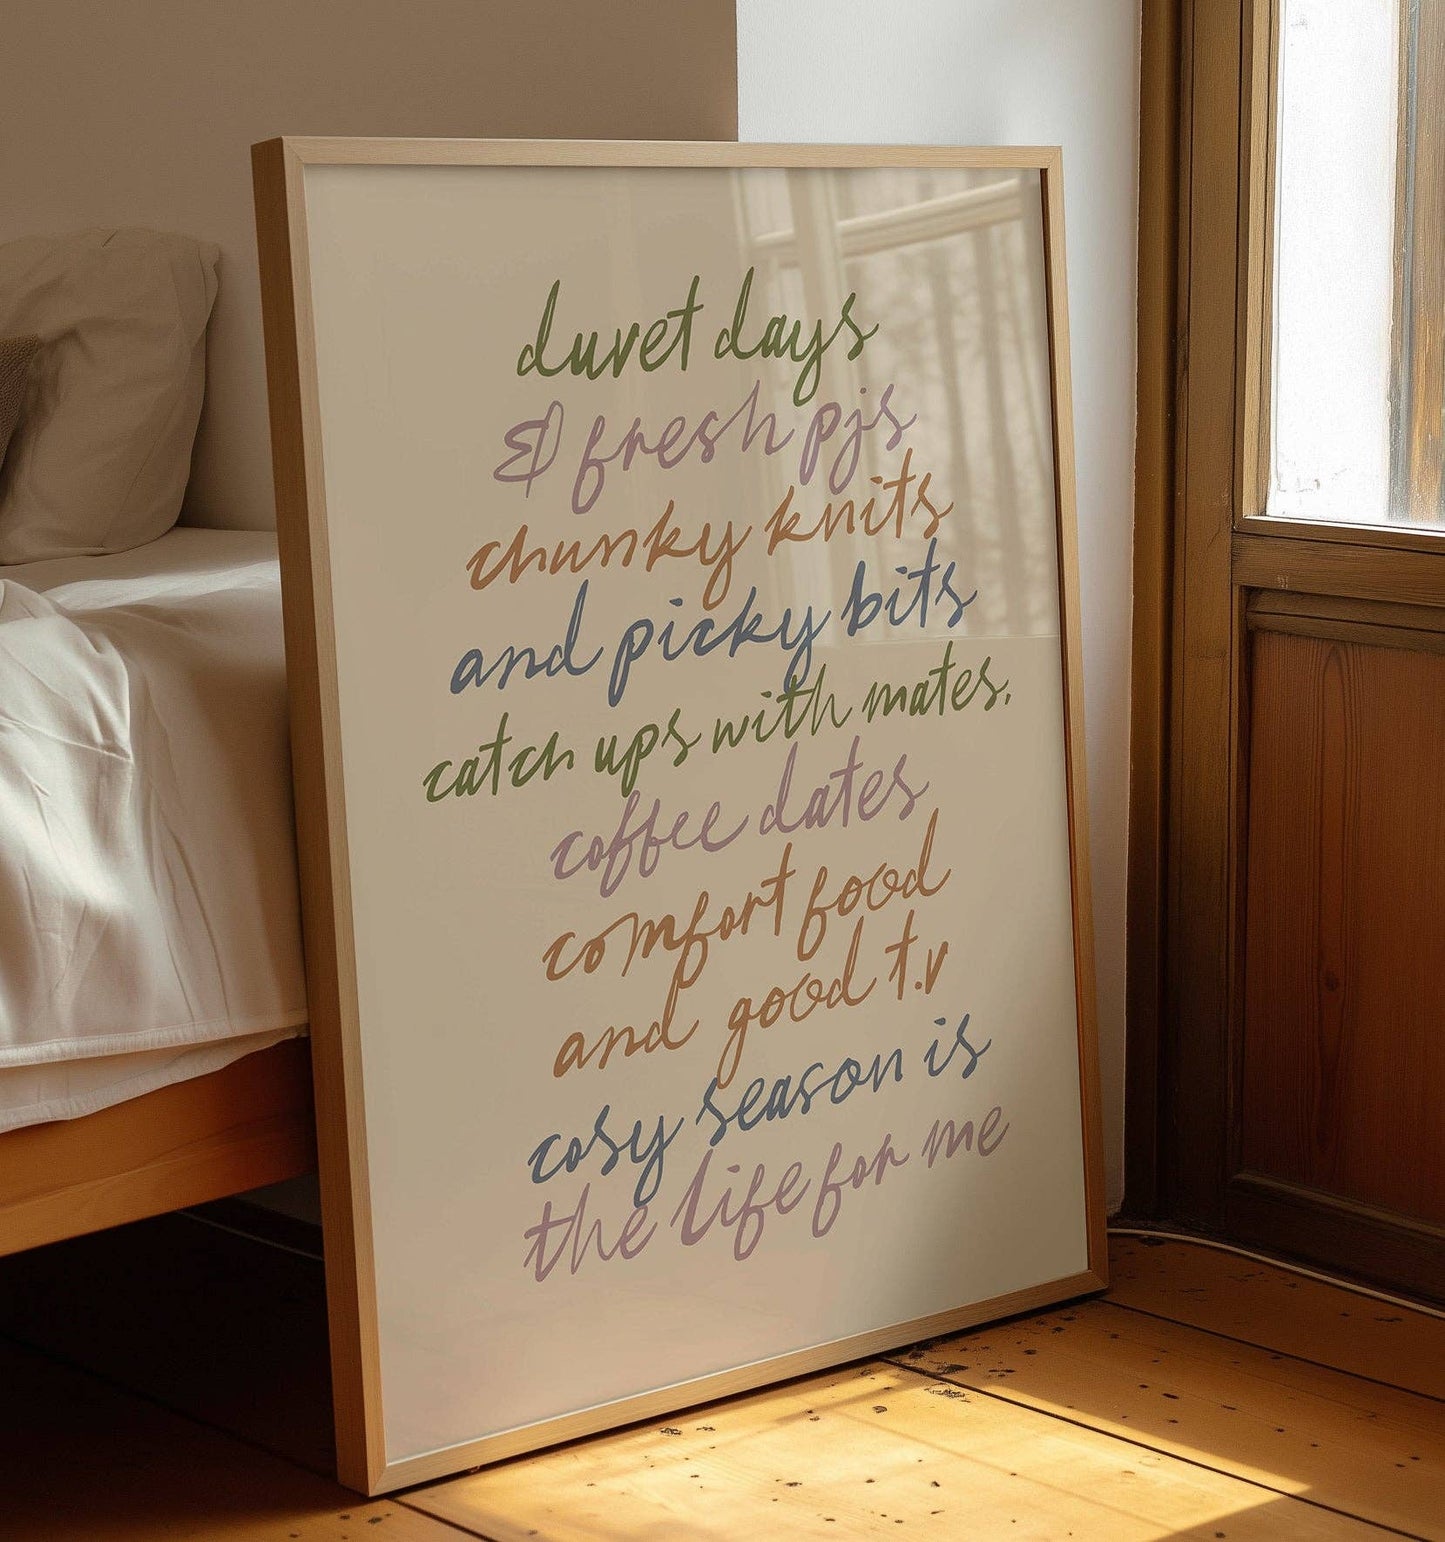 duvet days
& fresh pjs
chunky knits
and picky bits
catch ups with mates.
coffee dates
comfort food
and good t.v
cosy season is
the life for me